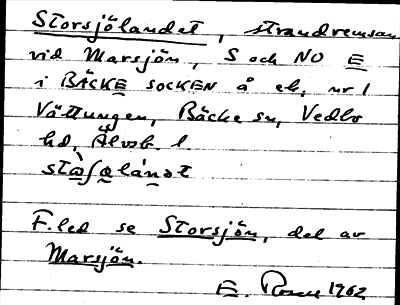 Storsjölandet, strandremsan
vid Marsjön, S och NO E
i BÄCKE SOCKEN å ek, nr 1
Vättungen, Bäcke sn, Vedbo
hd, Älvsb. l.
F.led se Storsjön, del av
Marsjön.
E. Rosen 1962